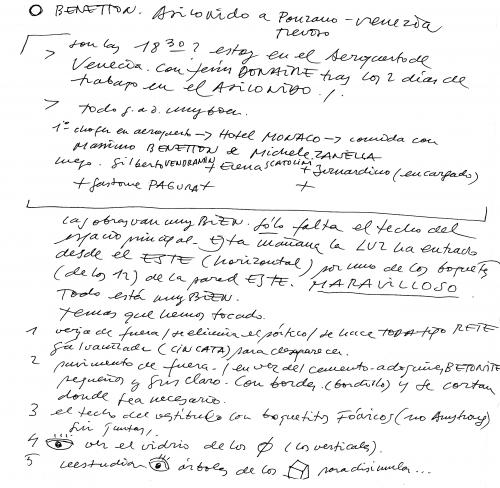 O BENETTON. Asilonido a Ponzano - Venezia
Treviso
> son las 18 30? estoy en el Aeropuerto de
Venecia. Con Jesús DONAIRE tras los 2 días de
trabajo en el ASILONIDO!.
> Todo g.a.d. muy bien.
1º chofer en aeropuerto → Hotel MONACO → comida con
Massimo BENETTON & Michele ZANELLA
luego. Gilberto VENDRAMIN + Elena SCATOLINI + Bernardino (encargado)
+ Gastone PAGURA + +
Las obras van muy BIEN. Sólo falta el techo del
espacio principal. Esta mañana la LUZ ha entrado
desde el ESTE (horizontal) por uno de los boquetes
(de los 12) de la pared ESTE. MARAVILLOSO.
Todo está muy BIEN.
Temas que hemos tocado.
1 verja de fuera / se elimina el pórtico / se hace TODA TIPO RETE
galvanizada (CINCATA) para desaparecer.
2 pavimento de fuera. / en vez del cemento - adoquines BETONITE
pequeños y gris claro. Con bordes (bordillo) y se cortan
donde sea necesario.
3 el techo del vestíbulo con boquetitos Fónicos (no Amstrong)
sin juntas,.
4 ver el vidrio de los ∅ (los verticales).
5 reestudiar árboles de los para disimular...